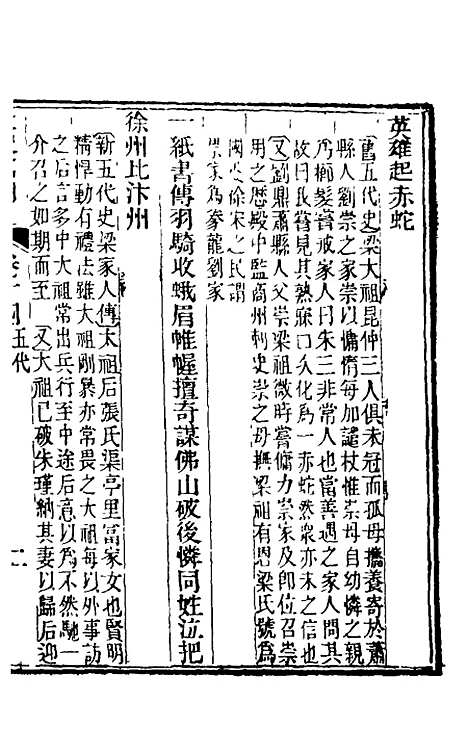 英雄起赤蛇
舊五代史梁太祖昆仲三人俱未冠而孤母攜養寄於蕭
縣人劉崇之家崇以慵惰每加譴杖惟崇母自幼憐之親
為櫛髮嘗戒家人曰朱三非常人也當善遇之家人問其
故曰我嘗見其熟寐口久化為一赤蛇然衆亦未之信也
又劉鼎蕭縣人父崇梁祖微時嘗傭力崇家及即位召崇
用之歷殿中監商州刺史崇之母撫梁祖有恩梁氏號為
國婆徐宋之民謂
崇家為豢龍劉家
一紙書傳羽騎收蛾眉帷幄擅奇謀佛山破後憐同姓泣把
徐州比汴州
新五代史梁家人傳太祖后張氏渠亭里富家女也賢明
精悍動有禮法雖太祖剛暴亦常畏之太祖每以外事訪
之后后言多中太祖常出兵行至中途后意以為不然馳一
介召之如期而至 又太祖已破朱瑾納其妻以歸后迎
卷十四五代